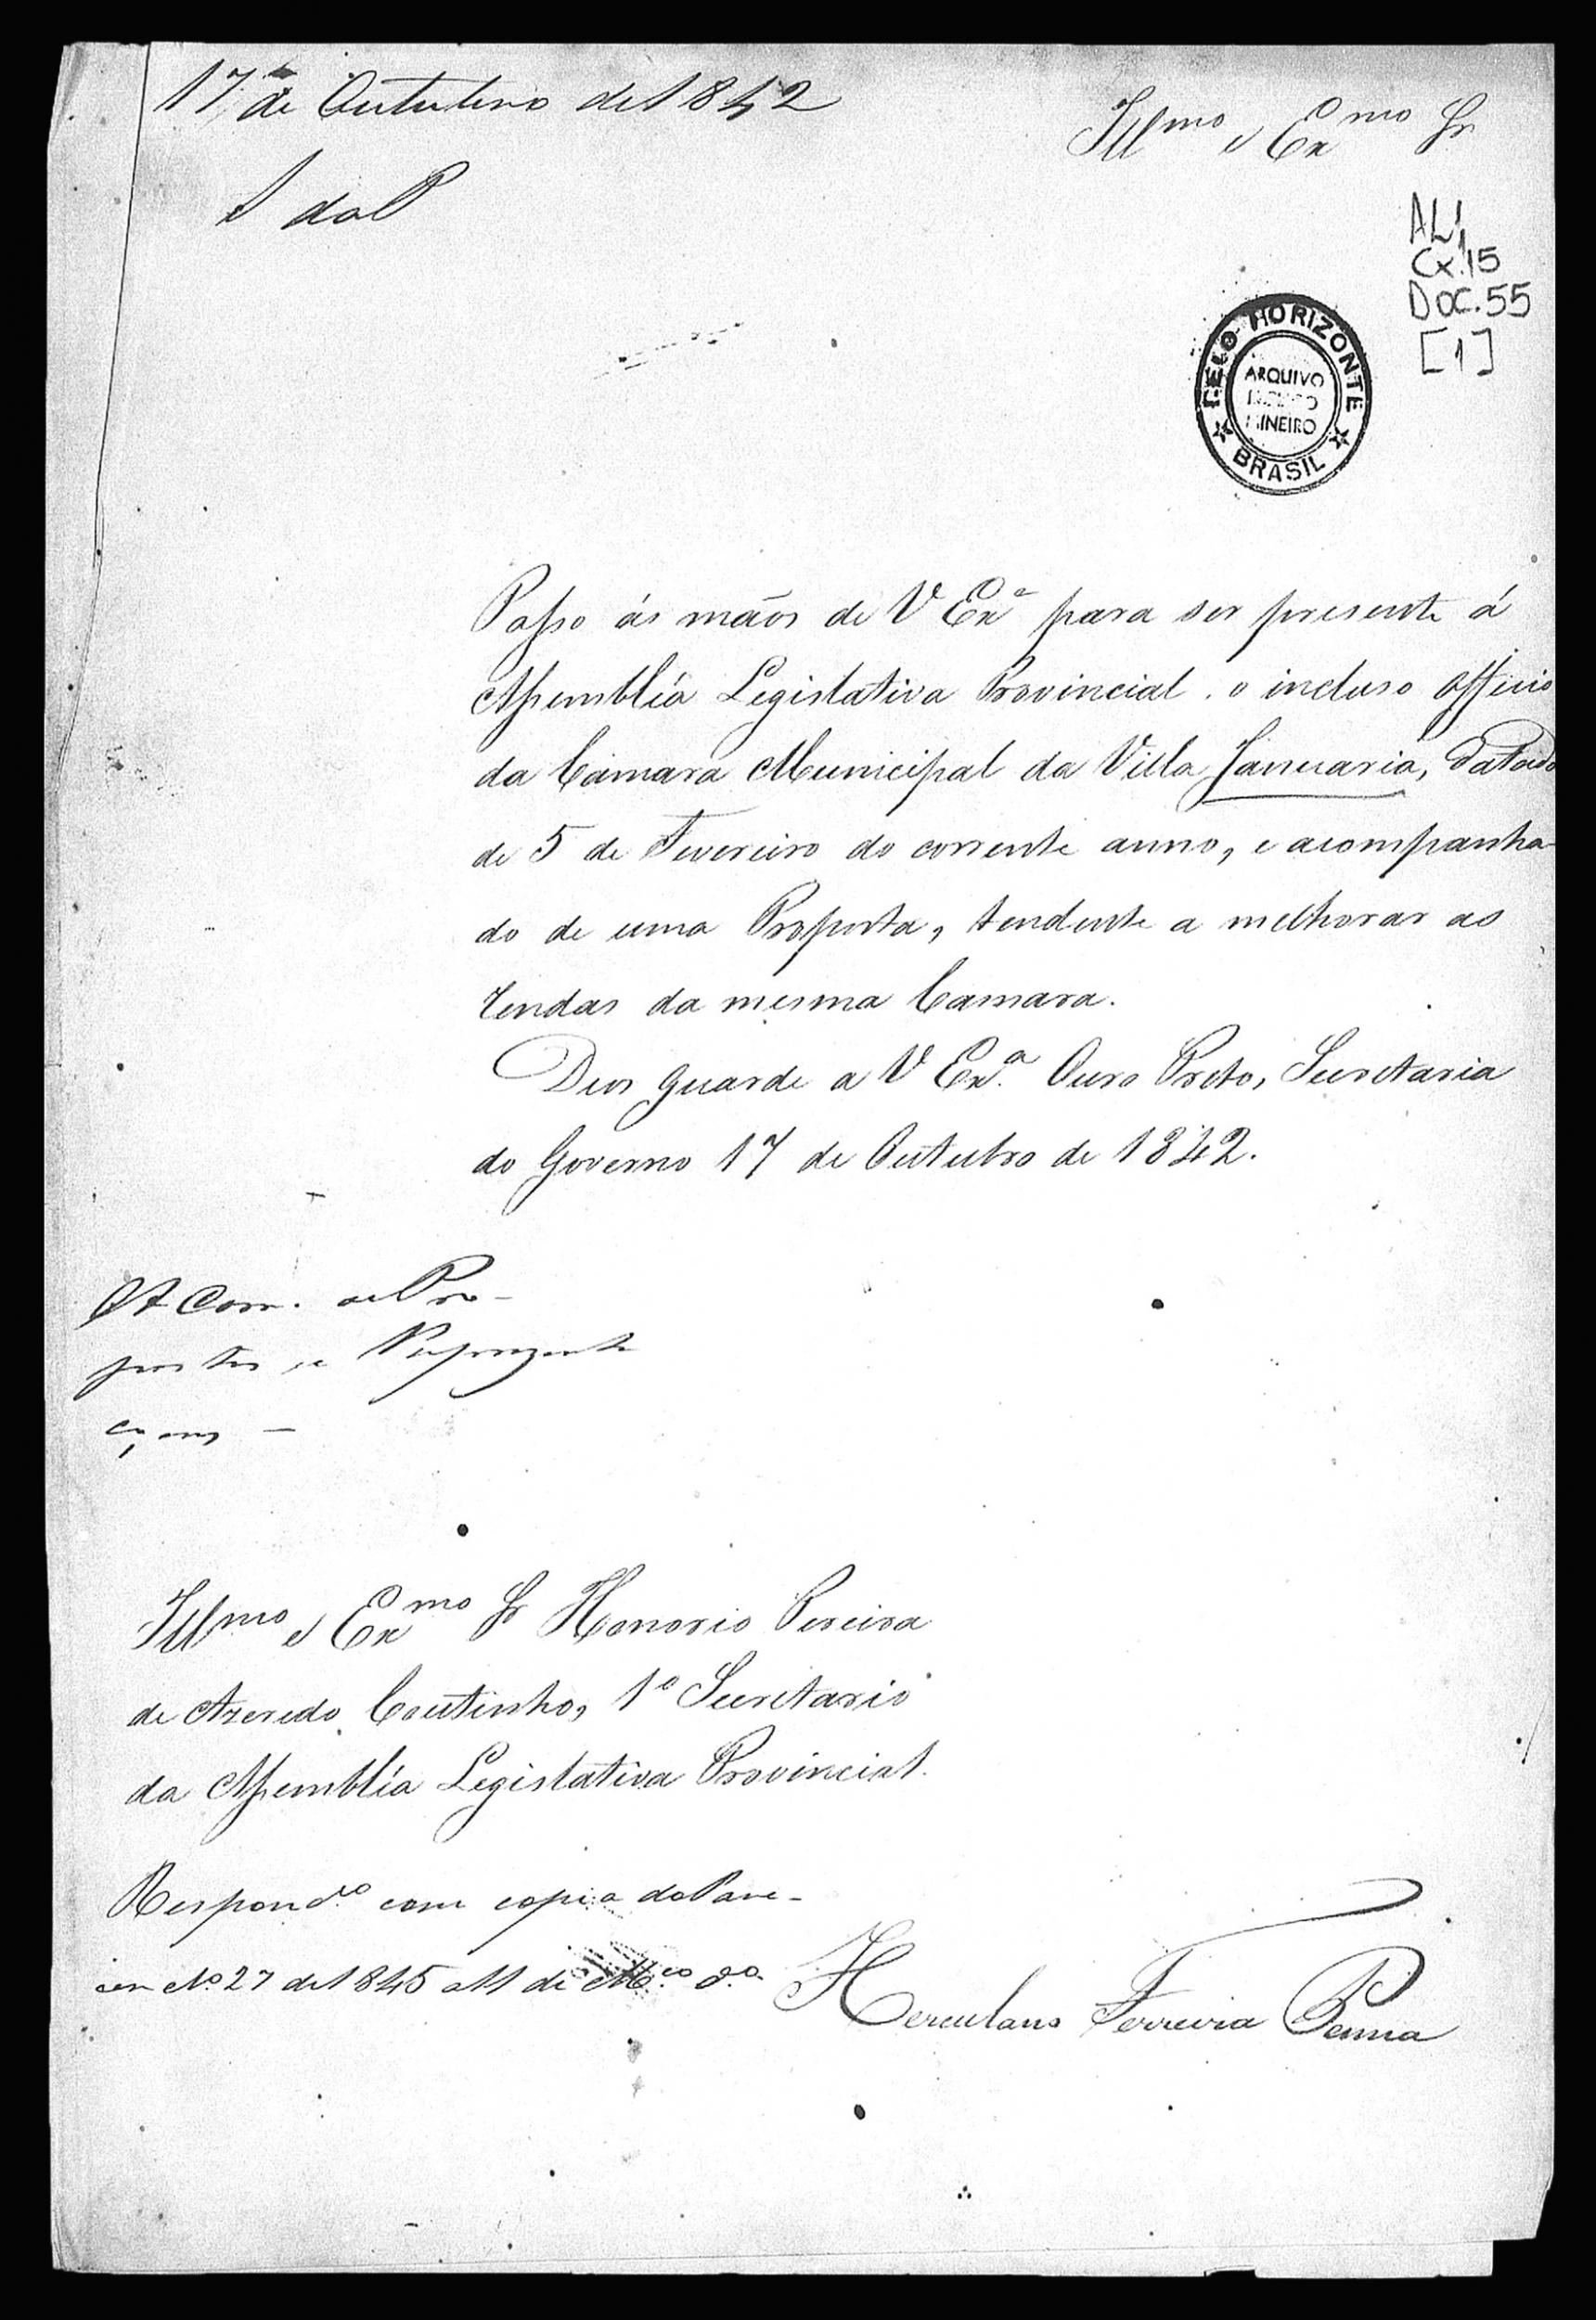 17 de Outubro de 1842
Illmo e Exmo Sr
AL1
Cx.15
DOC.55
[1]
BELO HORIZONTE
ARQUIVO
MINEIRO
BRASIL
Passo ás mãos de V Exa para ser presente á
Assembléa Legislativa Provincial o incluso officio
da Camara Municipal da Villa Januaria, datado
de 5 de Fevereiro do corrente anno, e acompanha-
do de uma Proposta, tendente a melhorar as
rendas da mesma Camara.
Deos Guarde a V Exa. Ouro Preto, Secretaria
do Governo 17 de Outubro de 1842.
A Com. de Pro-
postas e Reprezenta
çoens —
Illmo e Exmo Sr Honorio Pereira
de Azeredo Coutinho, 1o Secretario
da Assembléa Legislativa Provincial.
Respondo. com copia do Pare-
cer No. 27 de 1845 a 11 de Mço do.
Herculano Ferreira Penna